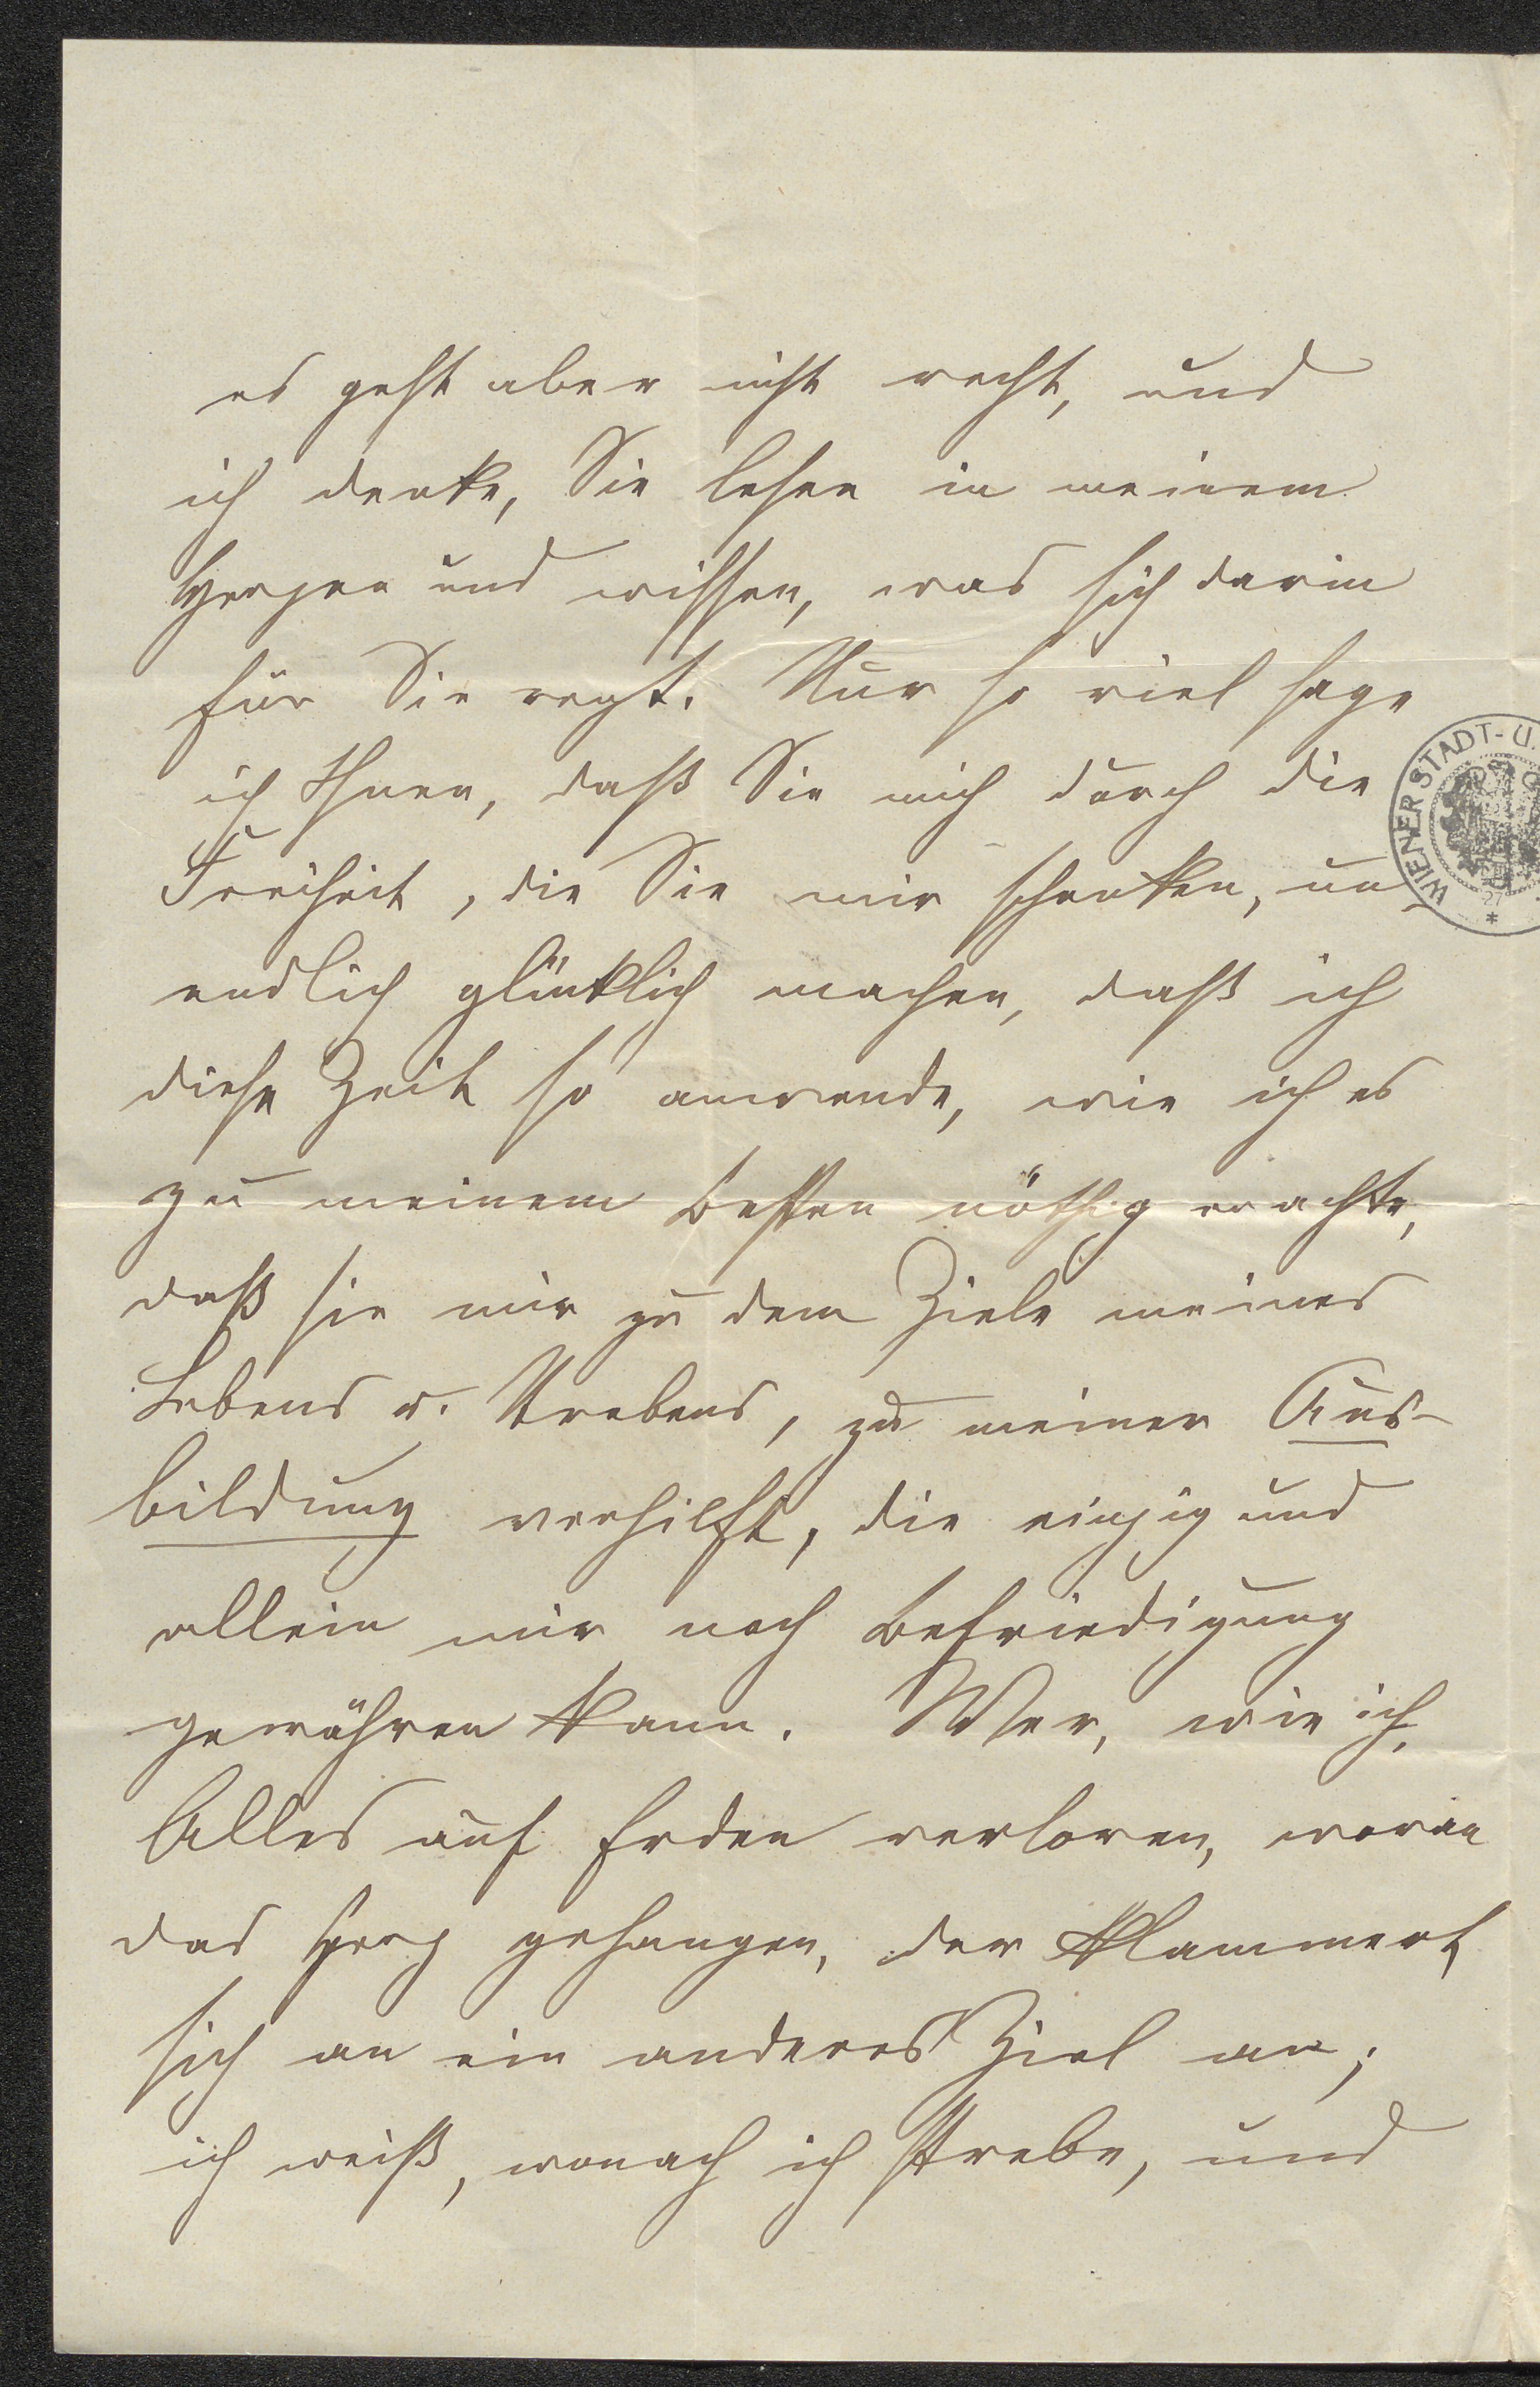 es geht aber nicht recht, und
ich denke, Sie lesen in meinem
Herzen und wissen, was sich darin
für Sie regt. Nur so viel sage
ich Ihnen, daß Sie mich durch die
Freiheit, die Sie mir schenken, un
endlich glücklich machen, daß ich
diese Zeit so anwende, wie ich es
zu meinem Besten nöthig erachte,
daß sie mir zu dem Ziele meines
Lebens u. Strebens, zu meiner Aus-
bildung verhilft, die einzig und
allein mir noch Befriedigung
gewähren kann. Wer, wie ich,
Alles auf Erden verloren, woran
das Herz gehangen, der klammert
sich an ein anderes Ziel an;
ich weiß, wonach ich strebe, und
WIENER STADT- U.